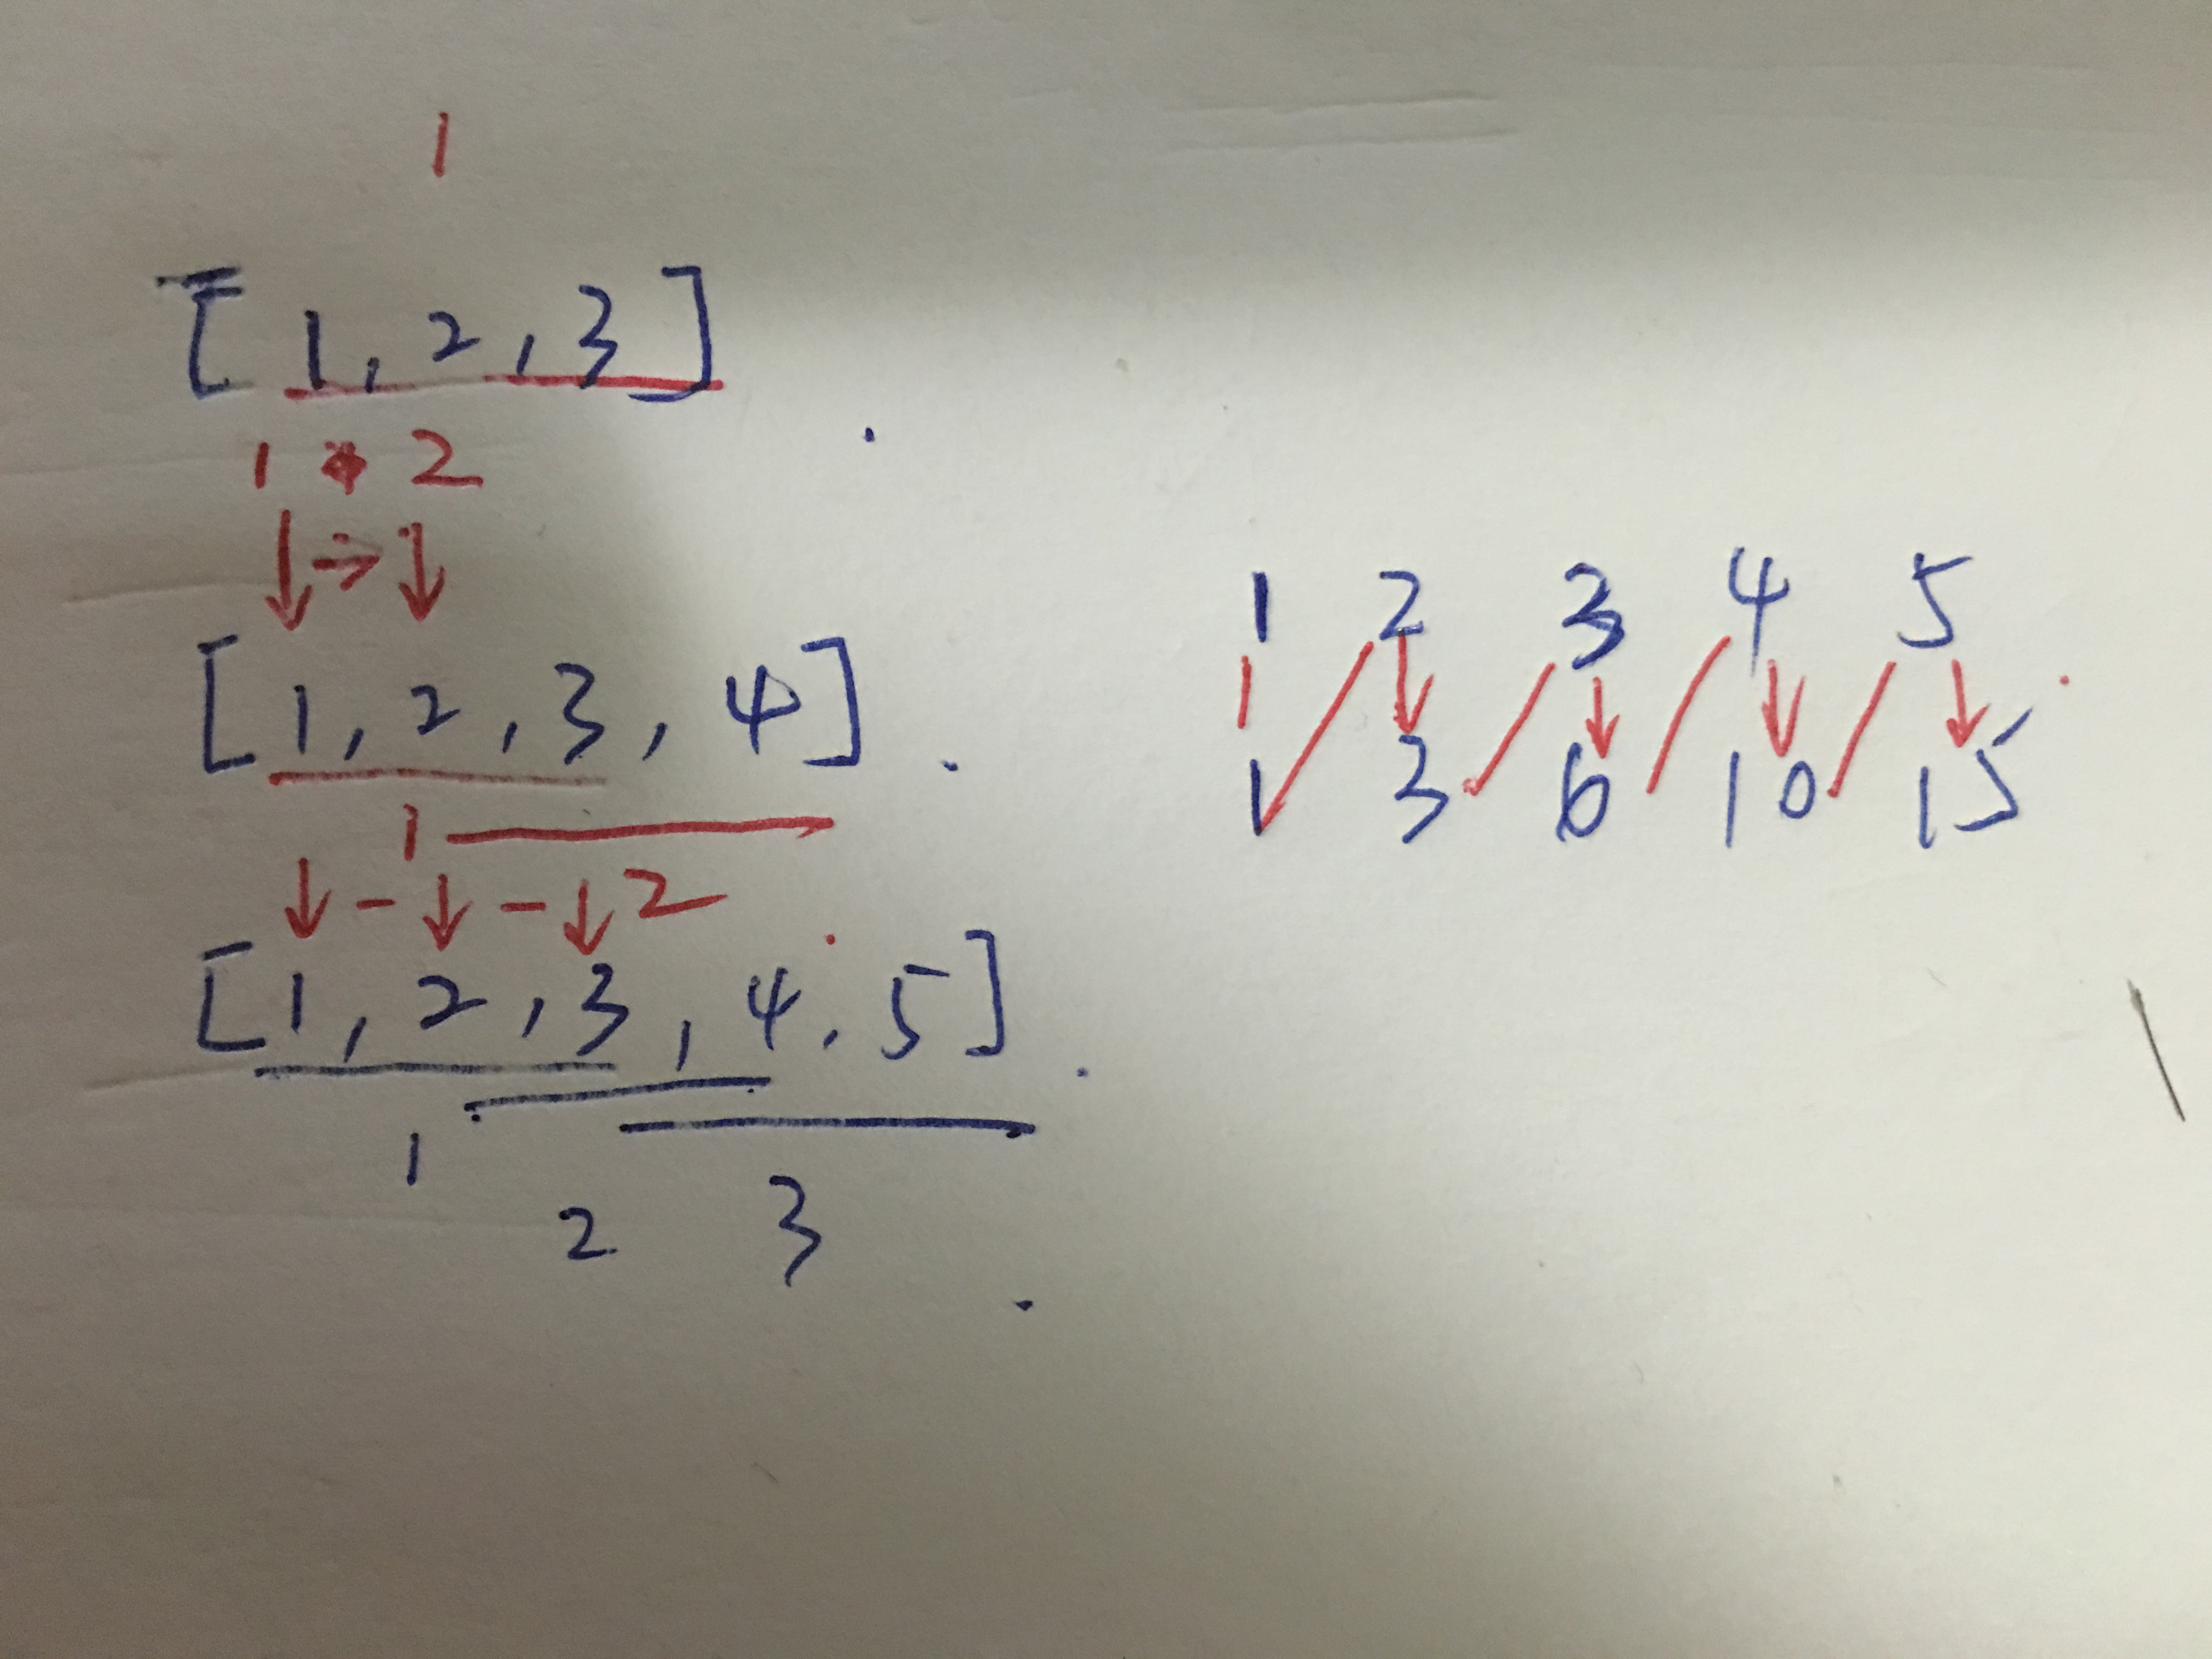 1
[1, 2, 3]
1 2
[1, 2, 3, 4]
1
2
[1, 2, 3, 4, 5]
1 2 3
1 2 3 4 5
1 3 6 10 15